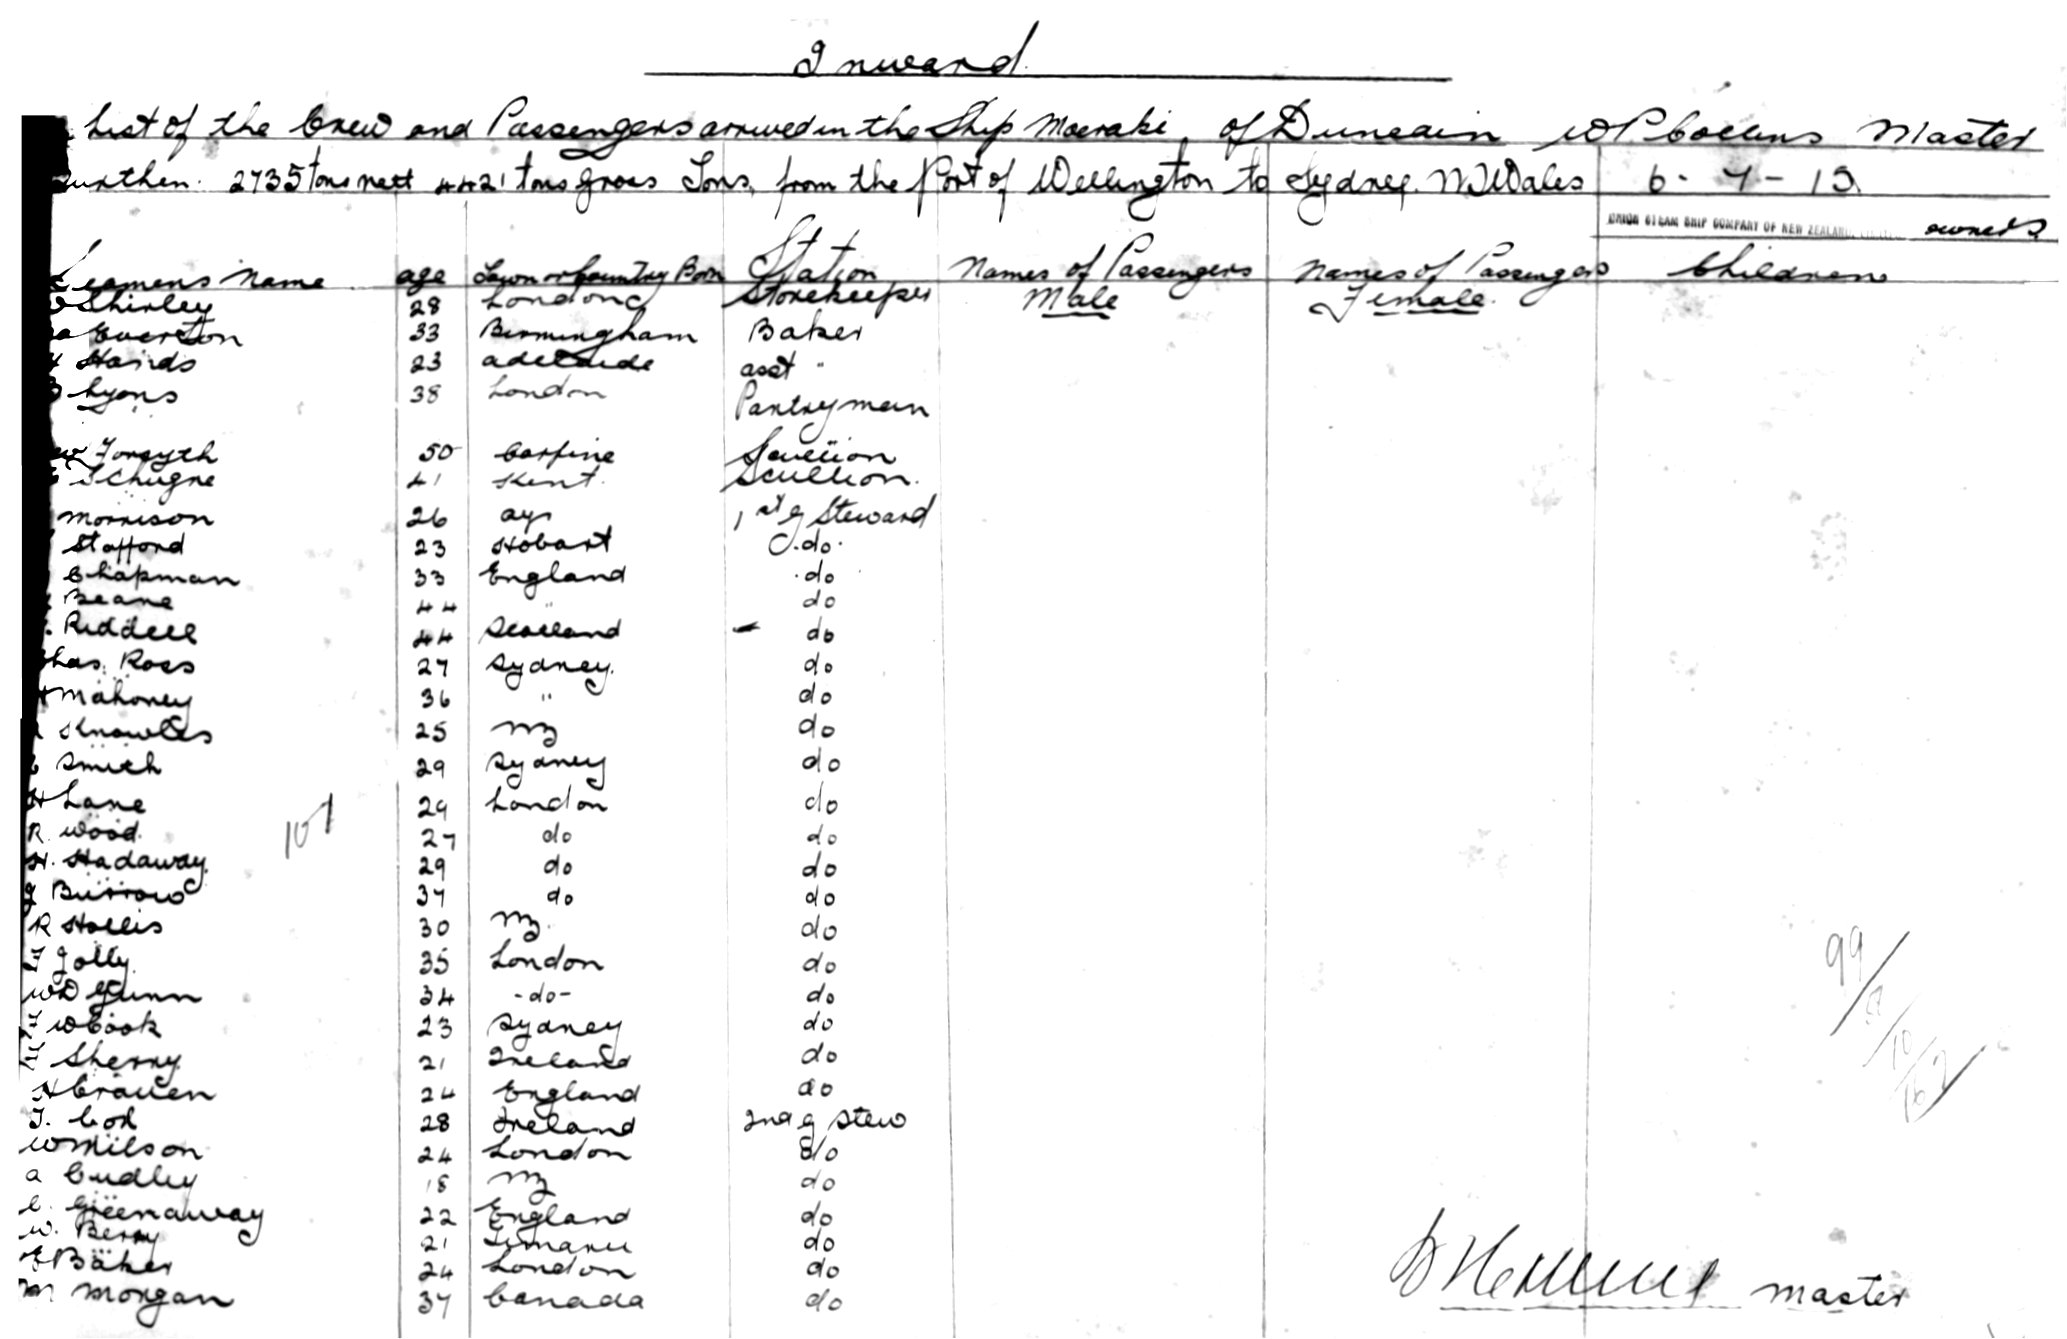 Inward
List of the Crew and Passengers arrived in the Ship Moeraki of Dunedin W P Collins Master
Burthen 2735 tons nett 4421 tons gross Tons, from the Port of Wellington to Sydney N S Wales 6 - 7 - 13
UNION STEAM SHIP COMPANY OF NEW ZEALAND, owners
Seamens Name age Town or Country Born Station Names of Passengers Male Names of Passengers Female Children
Shirley 28 London Storekeeper
Everton 33 Birmingham Baker
H Hands 23 adelaide asst "
Lyons 38 London Pantryman
Forsyth 50 Carfine Scullion
41 Kent Scullion
Morrison 26 ayr 1st g Steward
Stafford 23 Hobart do
Chapman 33 England do
Beane 44 " do
Riddell 44 Scotland do
Chas. Ross 27 Sydney do
H Mahoney 36 " do
Knowles 25 NZ do
Smith 29 Sydney do
H Lane 29 London do
R. Wood 27 do do
107
H. Hadaway 29 do do
J Burrow 37 do do
R Hollis 30 NZ do
F Jolly 35 London do
W D Gunn 34 -do- do
F W Cook 23 Sydney do
Sherry 21 Ireland do
H Craven 24 England do
T. Cox 28 Ireland 2nd g Stew
W Milson 24 London do
a Cudley 18 NZ do
C. Greenaway 22 England do
W. Berry 21 Timaru do
E Baker 24 London do
M Morgan 37 Canada do
99
master